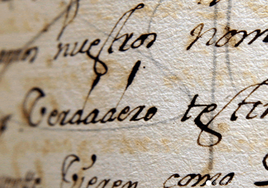 nuestros nom
Verdadero testim
Vieren como